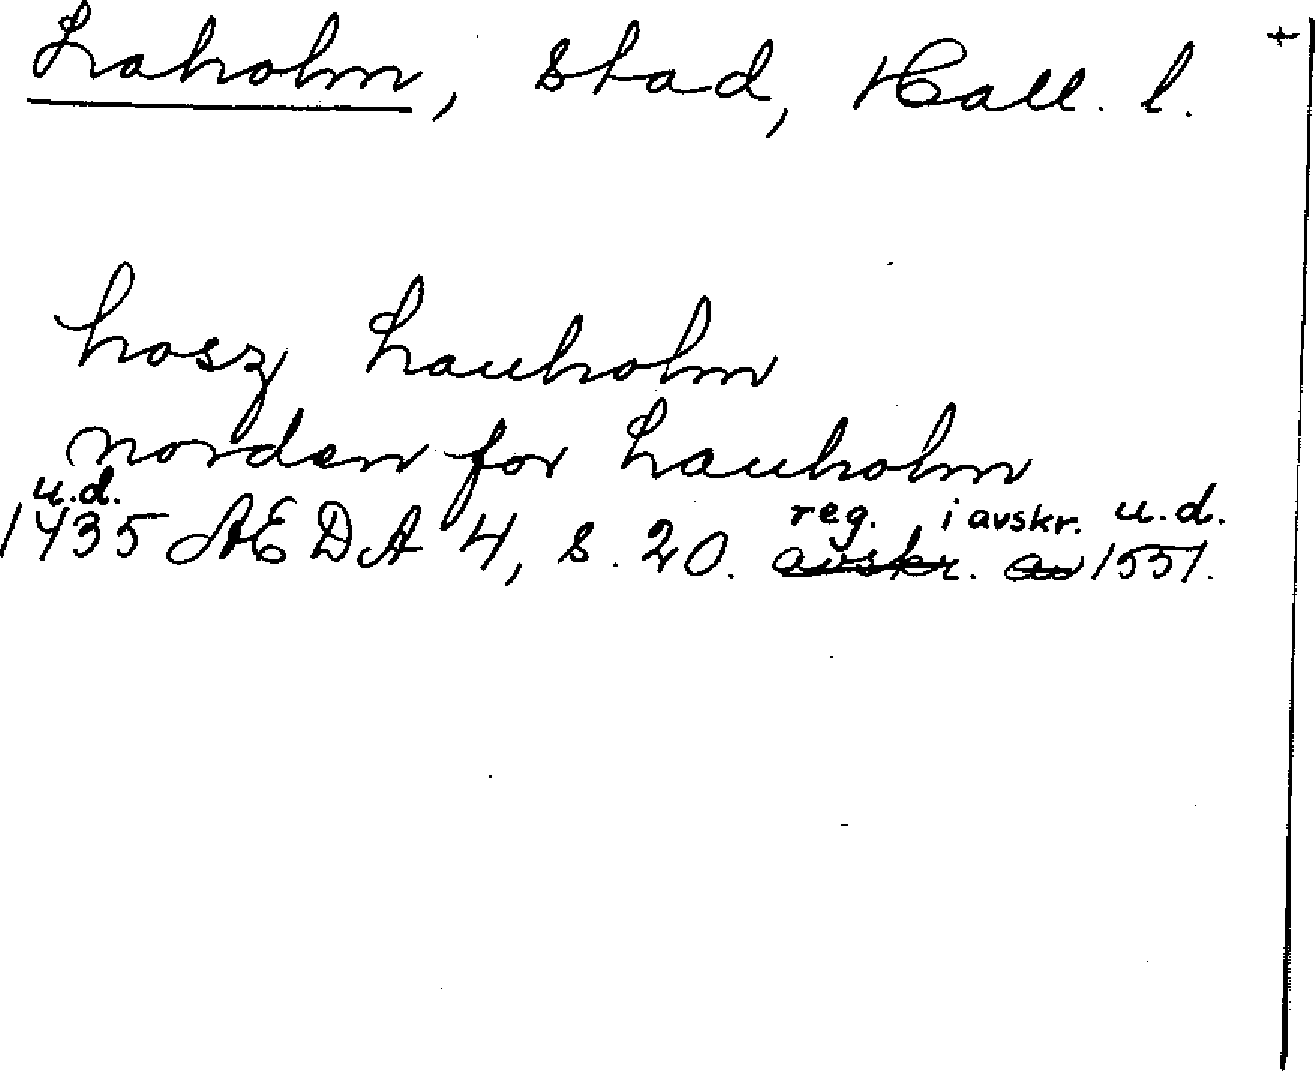 Laholm, stad, Hall. l. +
hosz Lauholm
norden for Lauholm
u.d. reg. i avskr. u.d.
1435 AEDA 4, s. 20. avskr. av 1551.